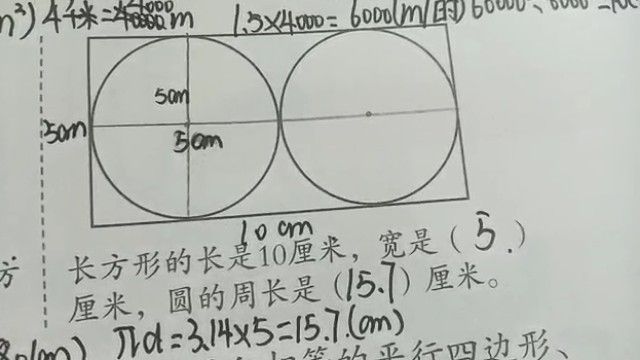 4千米=4000m
1.5×4000=6000(m)
5cm
5cm
5cm
10cm
长方形的长是10厘米，宽是（5.）
厘米，圆的周长是（15.7）厘米。
πd=3.14×5=15.7(cm)
的平行四边形、